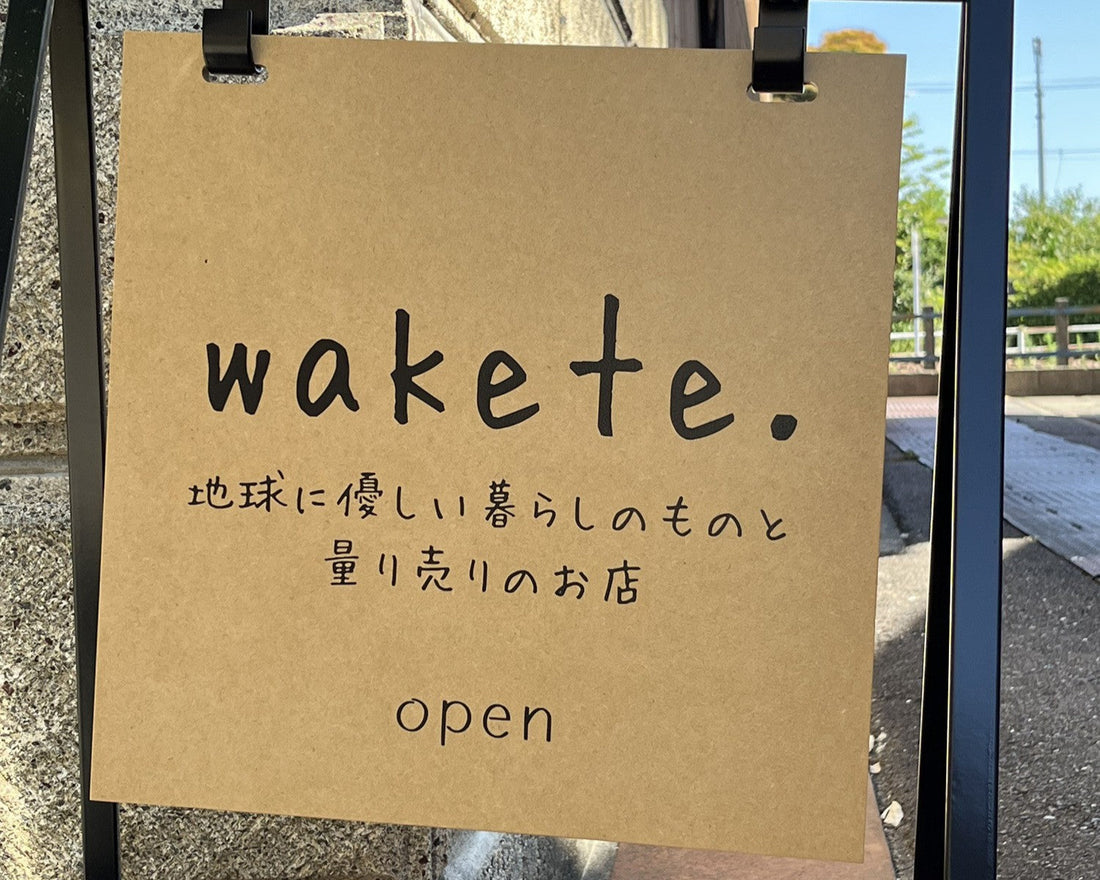 wakete.
地球に優しい暮らしのものと
量り売りのお店
open